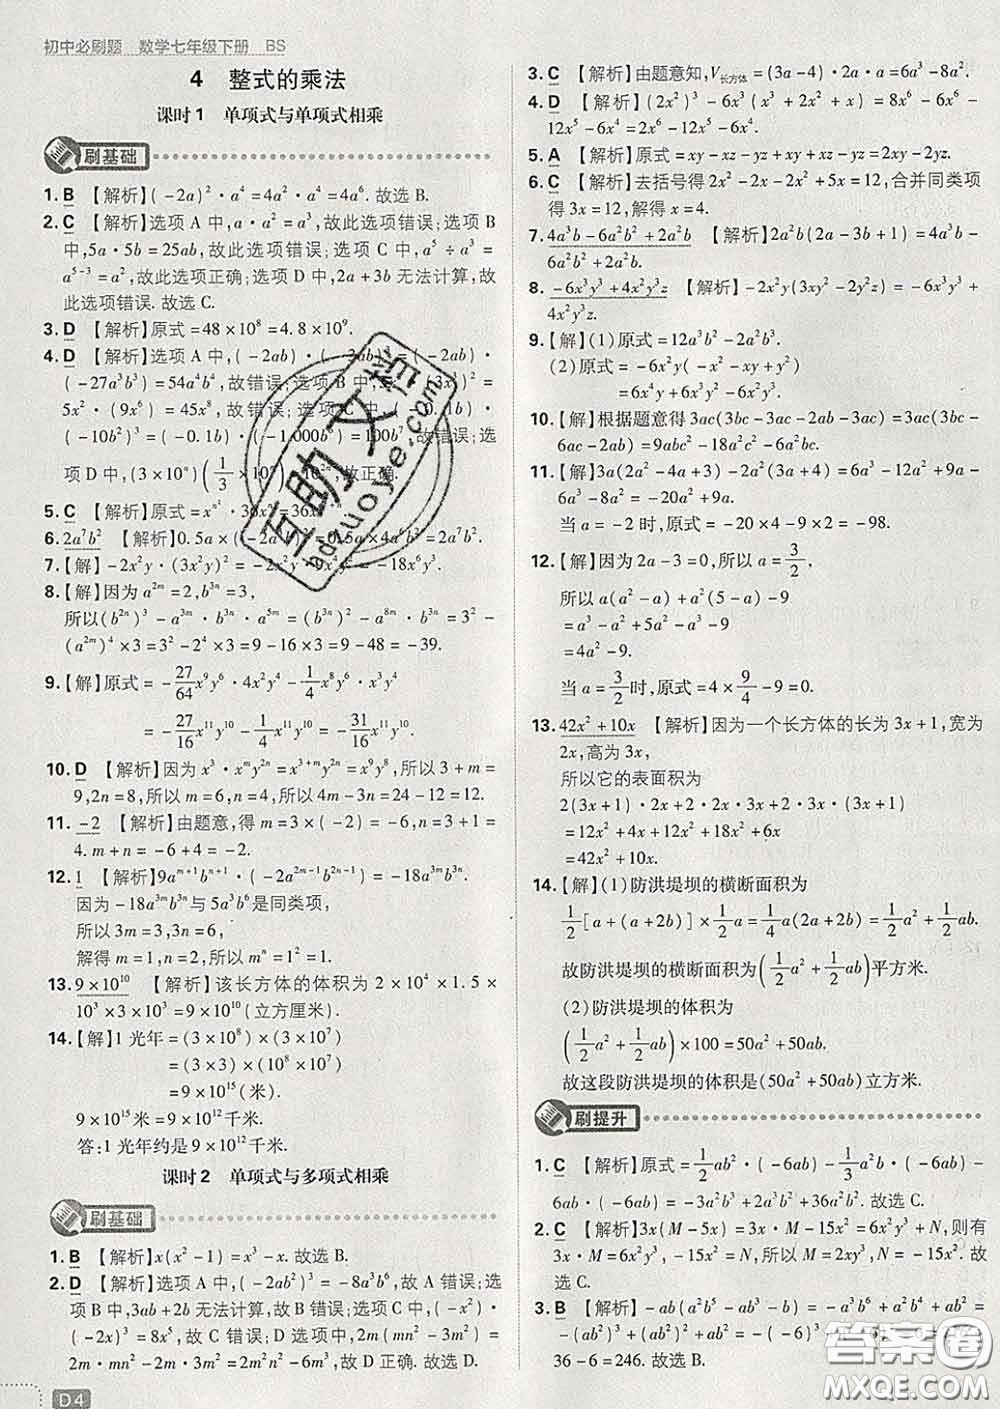 初中必刷题 数学七年级下册 BS
4 整式的乘法
课时1 单项式与单项式相乘
刷基础
1. B 【解析】(-2a)²·a⁴=4a²·a⁴=4a⁶. 故选 B.
2. C 【解析】选项 A 中,a·a²=a³,故此选项错误;选项 B
中,5a·5b=25ab,故此选项错误;选项 C 中,a⁵÷a³=
a⁵⁻³=a²,故此选项正确;选项 D 中,2a+3b 无法计算,故
此选项错误. 故选 C.
3. D 【解析】原式=48×10⁸=4.8×10⁹.
4. D 【解析】选项 A 中,(-2ab)·(-3ab)³=(-2ab)·
(-27a³b³)=54a⁴b⁴,故错误;选项 B 中,
5x²·(9x⁶)=45x⁸,故错误;选项 C 中,(-0.1b)·
(-10b²)³=(-0.1b)·(-1 000b⁶)=100b⁷,故错误;
选项 D 中,(3×10ⁿ)(1/3×10ⁿ)=10²ⁿ,故正确.
5. C 【解析】原式=
6. 2a⁷b² 【解析】0.5a×(-2a³b)²=0.5a×4a⁶b²=2a⁷b².
7. 【解】-2x²y·(3x²y)²=-2x²y·9x⁴y²=-18x⁶y³.
8. 【解】因为 a²ᵐ=2,b³ⁿ=3,
所以(b²ⁿ)³-a³ᵐ·b³ⁿ·a⁵ᵐ=(b³ⁿ)²-a⁸ᵐ·b³ⁿ=3²-
(a²ᵐ)⁴×3=3²-2⁴×3=9-16×3=9-48=-39.
9. 【解】原式=-27/64x⁹y⁶·4x²y⁴-1/4x⁸y⁶·x³y⁴
=-27/16x¹¹y¹⁰-1/4x¹¹y¹⁰=-31/16x¹¹y¹⁰.
10. D 【解析】因为 x³·xᵐy²ⁿ=x³⁺ᵐy²ⁿ=x⁹y⁸,所以 3+m=
9,2n=8,所以 m=6,n=4,所以 4m-3n=24-12=12.
11. -2 【解析】由题意,得 m=3×(-2)=-6,n=3+1=
4. m+n=-6+4=-2.
12. 1 【解析】9aᵐ⁺¹bⁿ⁺¹·(-2a²ᵐ⁻¹b²ⁿ⁻¹)=-18a³ᵐb³ⁿ,
因为-18a³ᵐb³ⁿ与 5a³b⁶是同类项,
所以 3m=3,3n=6,
解得 m=1,n=2. 所以 mⁿ=1²=1.
13. 9×10¹⁰ 【解析】该长方体的体积为 2×10⁴×1.5×
10³×3×10³=9×10¹⁰(立方厘米).
14. 【解】1 光年=(3×10⁸)×(3×10⁷)
=(3×3)×(10⁸×10⁷)
=9×10¹⁵(米).
9×10¹⁵米=9×10¹²千米.
答:1 光年约是 9×10¹²千米.
课时2 单项式与多项式相乘
刷基础
1. B 【解析】x(x²-1)=x³-x. 故选 B.
2. D 【解析】选项 A 中,(-2ab²)³=-8a³b⁶,故 A 错误;选
项 B 中,3ab+2b 无法计算,故 B 错误;选项 C 中,(-x²)·
(-2x)³=8x⁵,故 C 错误;选项 D 中,2m(mn²-3m²)=
2m·mn²-2m·3m²=2m²n²-6m³,故 D 正确. 故选 D.
D4
3. C 【解析】由题意知,V长方体=(3a-4)·2a·a=6a³-8a².
4. D 【解析】(2x²)³-6x³(x³+2x²+x)=8x⁶-6x⁶-
12x⁵-6x⁴=2x⁶-12x⁵-6x⁴.
5. A 【解析】原式=xy-xz-yz+xy+xz-yz=2xy-2yz.
6. C 【解析】去括号得 2x²-2x-2x²+5x=12,合并同类项
得 3x=12,解得 x=4.
7. 4a³b-6a²b²+2a²b 【解析】2a²b(2a-3b+1)=4a³b-
6a²b²+2a²b.
8. -6x³y³+4x²y³z 【解析】-2x²y(3xy²-2y²z)=-6x³y³+
4x²y³z.
9. 【解】(1)原式=12a³b²-2a²b³.
(2)原式=-6x²y(-x²-xy+y²)
=6x⁴y+6x³y²-6x²y³.
10. 【解】根据题意得 3ac(3bc-3ac-2ab-3ac)=3ac(3bc-
6ac-2ab)=9abc²-18a²c²-6a²bc.
11. 【解】3a(2a²-4a+3)-2a²(3a+4)=6a³-12a²+9a-
6a³-8a²=-20a²+9a.
当 a=-2 时,原式=-20×4-9×2=-98.
12. 【解】因为 2a-3=0,所以 a=3/2,
所以 a(a²-a)+a²(5-a)-9
=a³-a²+5a²-a³-9
=4a²-9.
当 a=3/2时,原式=4×9/4-9=0.
13. 42x²+10x 【解析】因为一个长方体的长为 3x+1,宽为
2x,高为 3x,
所以它的表面积为
2(3x+1)·2x+2×2x·3x+2×3x·(3x+1)
=12x²+4x+12x²+18x²+6x
=42x²+10x.
14. 【解】(1)防洪堤坝的横断面积为
1/2[a+(a+2b)]×1/2a=1/4a(2a+2b)=1/2a²+1/2ab.
故防洪堤坝的横断面积为(1/2a²+1/2ab)平方米.
(2)防洪堤坝的体积为
(1/2a²+1/2ab)×100=50a²+50ab.
故这段防洪堤坝的体积是(50a²+50ab)立方米.
刷提升
1. C 【解析】原式=1/2ab²·(-6ab)-1/3a²b·(-6ab)-
6ab·(-6ab)=-3a²b³+2a³b²+36a²b². 故选 C.
2. C 【解析】3x(M-5x)=3x·M-15x²=6x²y³+N,则有
3x·M=6x²y³,-15x²=N,所以 M=2xy³,N=-15x². 故
选 C.
3. B 【解析】-ab(a²b⁵-ab³-b)=-a³b⁶+a²b⁴+ab²=
-(ab²)³+(ab²)²+ab²=-(-6)³
36-6=246. 故选 B.
互助文稿
huzuoye.com
答案圈
MXQE.COM